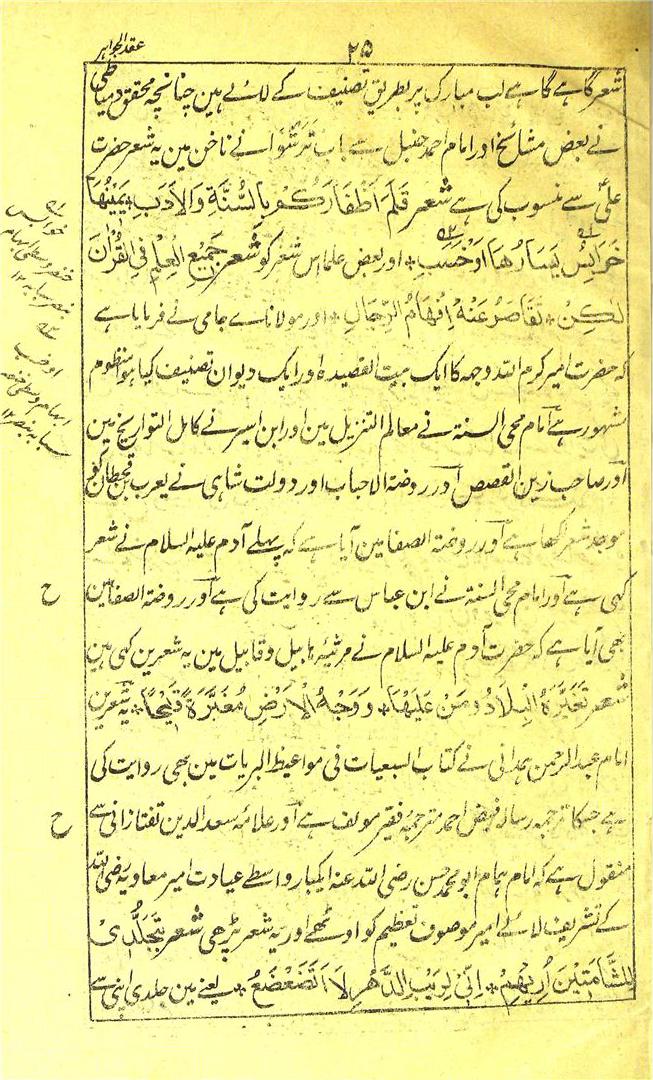 عقد الجواہر
۲۵
شعر گاہے گاہے لب مبارک پر بطریق تصنیف کے لائے ہین چنانچہ محقق دمیاطی
نے بعض مشائخ اور امام احمد حنبل سے باب ترشوانے ناخن مین یہ شعر حضرت
علی سے منسوب کی ہے شعر قَلِّمْ اَظْفَارَكُمْ بِالسُّنَّةِ وَالْاَدَبِ * يَمِيْنُهَا
خَوَابِسُ يَسَارُهَا اَوْخَسَبِ * اور بعض علما اس شعر کو شعر جَمِيْعُ الْعِلْمِ فِي الْقُرْاٰنِ
لٰكِنْ * تَقَاصَرُ عَنْهُ اَفْهَامُ الرِّجَالِ * اور مولانا جامی نے فرمایا ہے
کہ حضرت امیر کرم اللہ وجہہ کا ایک بیت القصیدہ اور ایک دیوان تصنیف کیا ہوا منظوم
مشہور ہے امام محی السنۃ نے معالم التنزیل مین اور ابن اسیر نے کامل التواریخ مین
اور صاحب زین القصص اور روضۃ الاحباب اور دولت شاہی نے یعرب بن قحطان کو
موجد شعر لکھا ہے اور روضۃ الصفا مین آیا ہے کہ پہلے آدم علیہ السلام نے شعر
کہی ہے اور امام محی السنۃ نے ابن عباس سے روایت کی ہے اور روضۃ الصفا مین
بھی آیا ہے کہ حضرت آدم علیہ السلام نے مرثیہ ہابیل و قابیل مین یہ شعرین کہی ہین
شعر تَغَيَّرَةُ الْبِلَادُ وَمَنْ عَلَيْهَا * وَوَجْهُ الْاَرْضِ مُغْبَرَّةٌ قَبِيْحًا * یہ شعرین
امام عبد الرحمن ہمدانی نے کتاب السبعیات فی مواعیظ البریات مین بھی روایت کی
ہے جسکا ترجمہ رسالہ فیض احمد مترجمہ فقیر مولف ہے اور علامہ سعد الدین تفتازانی سے
منقول ہے کہ امام ہمام ابو محمد حسن رضی اللہ عنہ ایکبار واسطے عیادت امیر معاویہ رضی اللہ
کے تشریف لائے امیر موصوف تعظیم کو اوٹھے اور یہ شعر پڑھی شعر بِتَجَلُّدِيْ
لِلشَّامِتِيْنَ اُرِيْهِمْ * اِنِّيْ لِرَيْبِ الدَّهْرِ لَا اَتَضَعْضَعُ * یعنے مین جلدی اپنی سے
خوابس
اوخسب
ح
ح